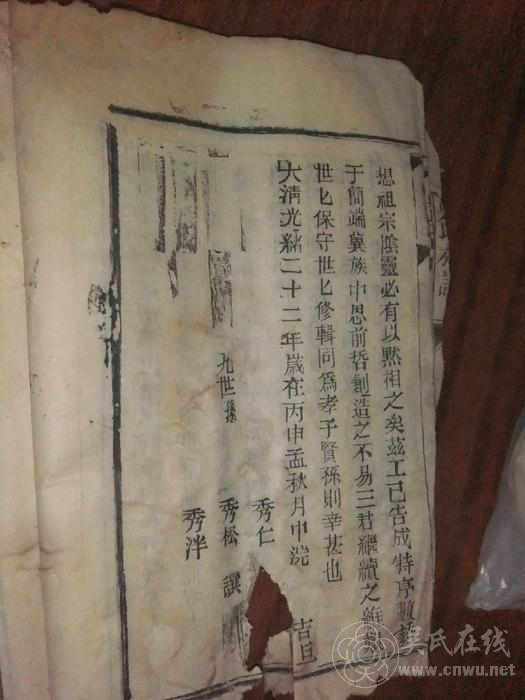 想祖宗陰靈必有以黙相之矣茲工已告成特序
于簡端冀族中思前哲創造之不易三君繼續之維
世匕保守世匕修輯同爲孝子賢孫則幸甚也
大清光緒二十二年歲在丙申孟秋月中浣 吉旦
秀仁
九世孫 秀松 譔
秀泮
吴氏在线
www.cnwu.net